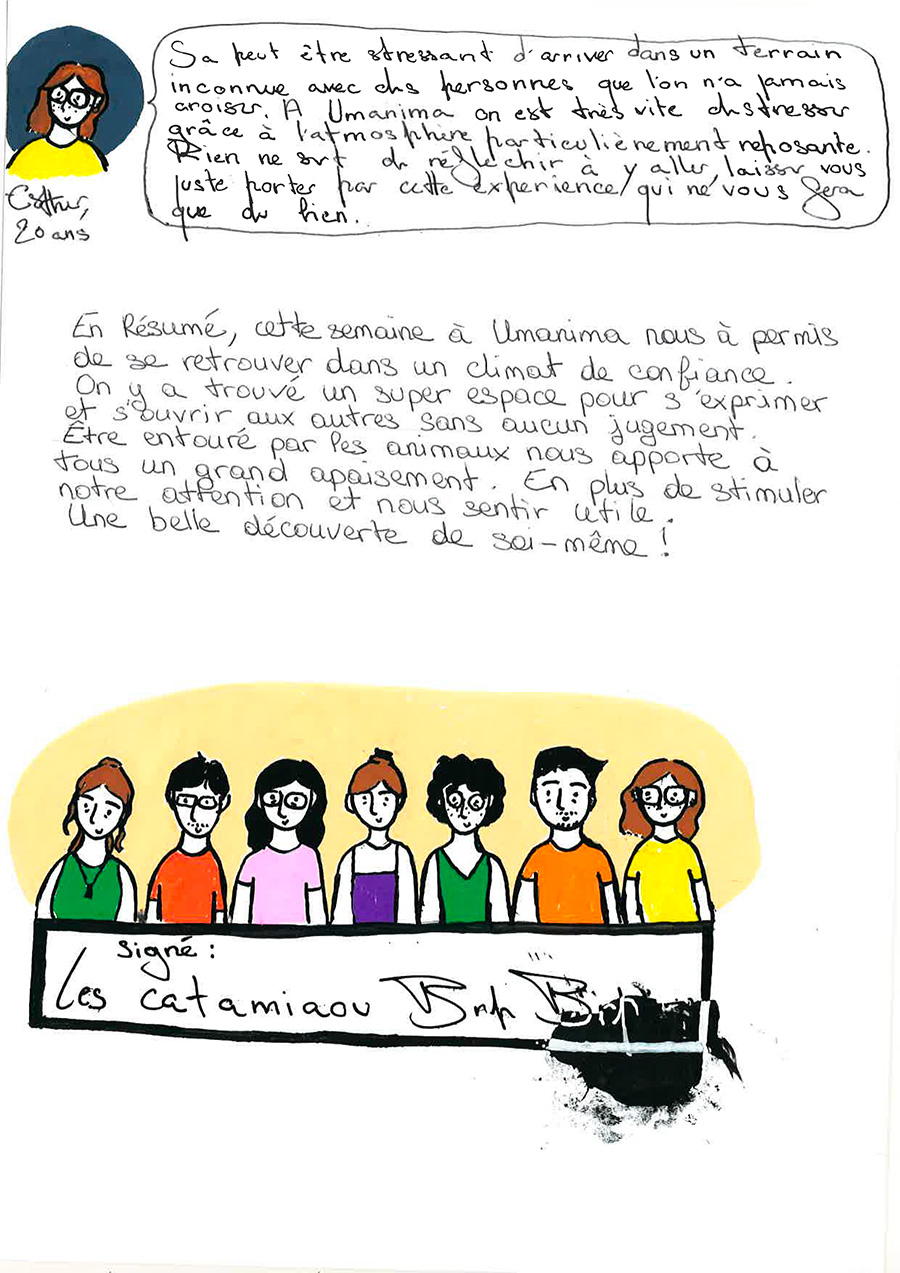 Sa peut être stressant d'arriver dans un terrain
inconnue avec des personnes que l'on n'a jamais
croiser. A Umanima on est très vite destresser
grâce à l'atmosphère particulièrement reposante.
Rien ne sert de réflechir à y aller, laisser vous
juste porter par cette experience, qui ne vous fera
que du bien.
Esther,
20 ans
En Résumé, cette semaine à Umanima nous à permis
de se retrouver dans un climat de confiance.
On y a trouvé un super espace pour s'exprimer
et s'ouvrir aux autres sans aucun jugement.
Être entouré par les animaux nous apporte à
tous un grand apaisement. En plus de stimuler
notre attention et nous sentir utile.
Une belle découverte de soi-même !
Signé :
Les catamiaou